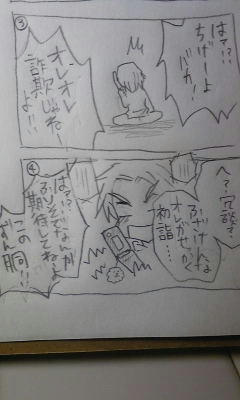 ③
はァ!?
ちげーよ
バカ!
オレオレ
詐欺じゃねー
よ!!
④
へ?冗談?
ふざけんな
オレがせっかく
初詣……
はァ!?
期待してねーよ
この